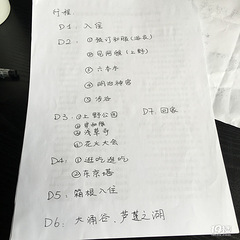 行程
D1. 入住
D2. ①
②
③六本木
④明治神宫
⑤涉谷
D3. ①上野公园
D7. 回家
②
③浅草寺
④花火大会
D4: ①逛吃逛吃
②东京塔
D5: 箱根入住
D6: 大涌谷、芦芝之湖